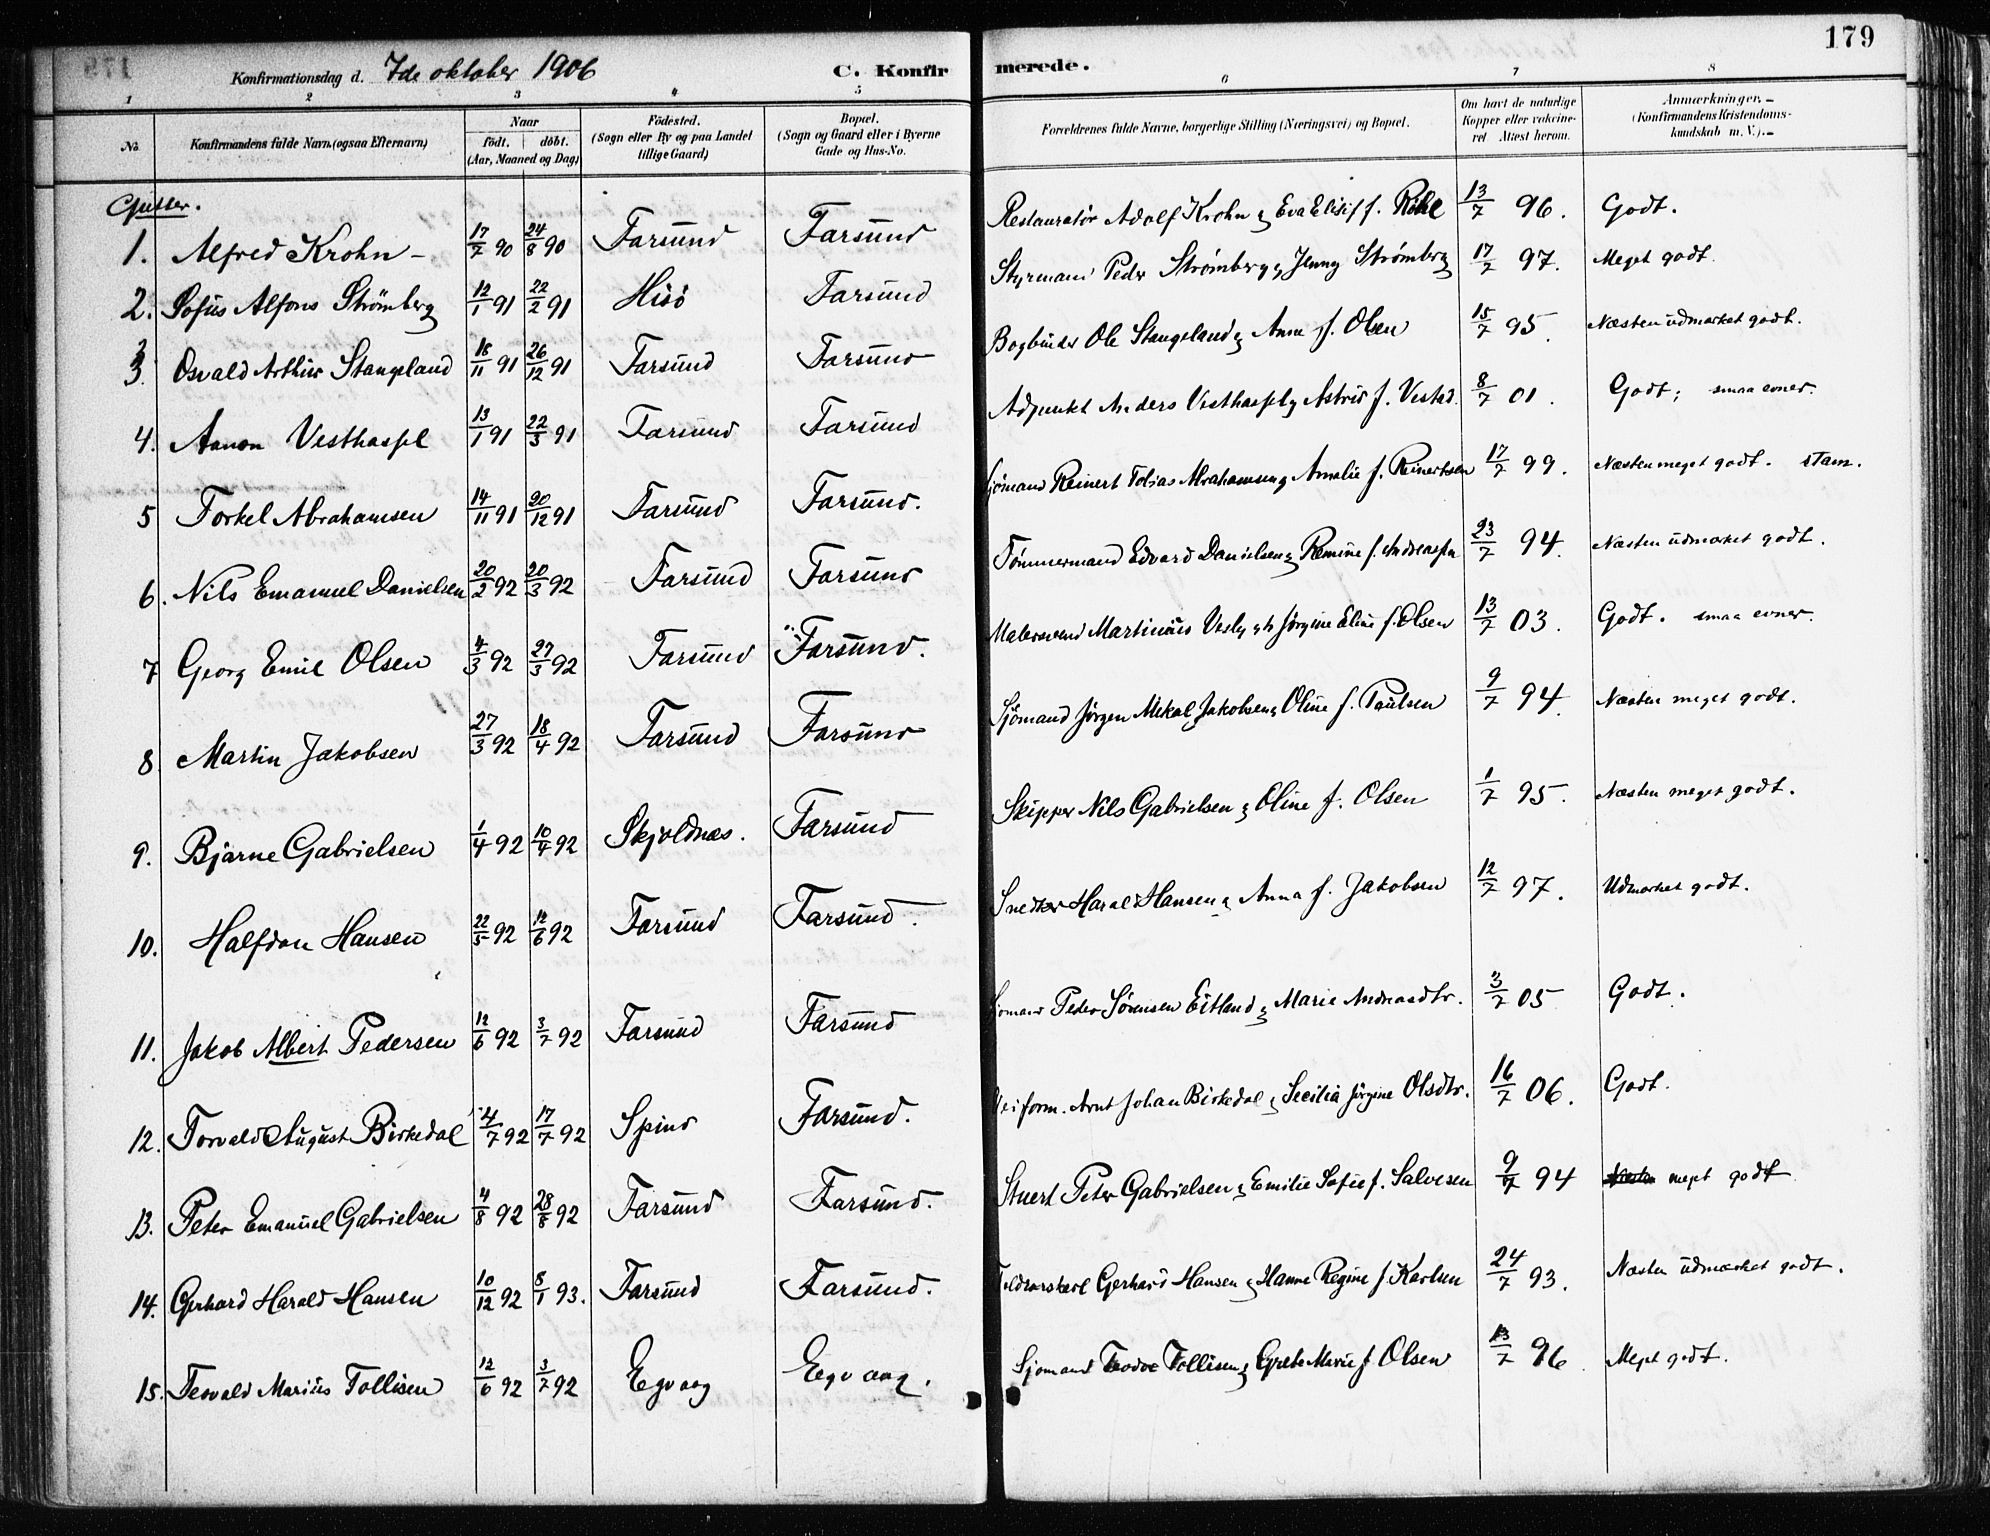 179
Konfirmationsdag d. 7de oktober 1906 C. Konfirmerede.
1 2 3 4 5 6 7 8
No. Konfirmandens fulde Navn (ogsaa Efternavn) Naar født. døbt. (Aar, Maaned og Dag) Födested. (Sogn eller By og paa Landet tillige Gaard) Bopæl. (Sogn og Gaard eller i Byerne Gade og Hus-No. Forældrenes fulde Navne, borgerlige Stilling (Næringsvei) og Bopæl. Om havt de naturlige Kopper eller vaccineret Attest herom. Anmærkninger. (Konfirmandens Kristendomskundskab m. V.)
Gutter.
1. Alfred Krohn - 17/7 90 24/8 90 Farsund Farsund Restauratør Adolf Krohn & Eva Elisif f. 13/7 96. Godt.
2. Sofus Alfons Strömberg 12/1 91 22/2 91 Hisö Farsund Styrmand Peder Strömberg & Jenny Strömberg 17/7 97. Meget godt.
3. Osvald Arthur Stangeland 18/11 91 26/12 91 Farsund Farsund Bogbinder Ole Stangeland & Anna f. Olsen 15/7 95. Næsten udmærket godt.
4. Aanon Vesthassel 13/1 91 22/3 91 Farsund Farsund Adjunkt Anders Vesthassel & Astrid f. Vestad. 8/7 01. Godt; smaa evner.
5 Torkel Abrahamsen 14/11 91 20/12 91 Farsund Farsund. Sjömand Reinert Tobias Abrahamsen & Amalie f. Reinertsen 17/7 99. Næsten meget godt. stam.
6. Nils Emanuel Danielsen 20/2 92 20/3 92 Farsund Farsund Tömmermand Edvard Danielsen & f. Andreassen 23/7 94. Næsten udmærket godt.
7 Georg Emil Olsen 4/3 92 27/3 92 Farsund Farsund. Malersvend Martinius & Jørgine Eline f. Olsen 13/7 03. Godt. smaa evner.
8. Martin Jakobsen 27/3 92 18/4 92 Farsund Farsund Sjömand Jörgen Mikal Jakobsen & Oline f. Paulsen 9/7 94. Næsten meget godt.
9. Bjarne Gabrielsen 1/4 92 10/4 92 Skjoldnæs. Farsund Skipper Nils Gabrielsen & Oline f. Olsen 1/7 95. Næsten meget godt.
10. Halfdan Hansen 22/5 92 12/6 92 Farsund Farsund. Snedker Harald Hansen & Anna f. Jakobsen 12/7 97. Udmærket godt.
11. Jakob Albert Pedersen 12/6 92 3/7 92 Farsund Farsund Sjömand Peder Sörensen Eitland & Marie Andreasdtr. 3/7 05 Godt.
12. Torvald August Birkedal 4/7 92 17/7 92 Spind Farsund. Veiform. Arnt Johan Birkedal & Secilia Jörgine Olsdtr. 16/7 06. Godt.
13. Peter Emanuel Gabrielsen 4/8 92 28/8 92 Farsund Farsund. Stuert Peter Gabrielsen & Emilie Sofie f. Salvesen 9/7 94 meget godt
14. Gerhard Harald Hansen 10/12 92 8/1 93. Farsund Farsund. Gerhard Hansen & Hanne Regine f. Karlsen 24/7 93. Næsten udmærket godt.
15. Tesvald Marius Tollisen 12/6 92 3/7 92 Egvaag Egvaag. Sjömand Teodor Tollisen & Grete Marie f. Olsen 13/7 96 Meget godt.